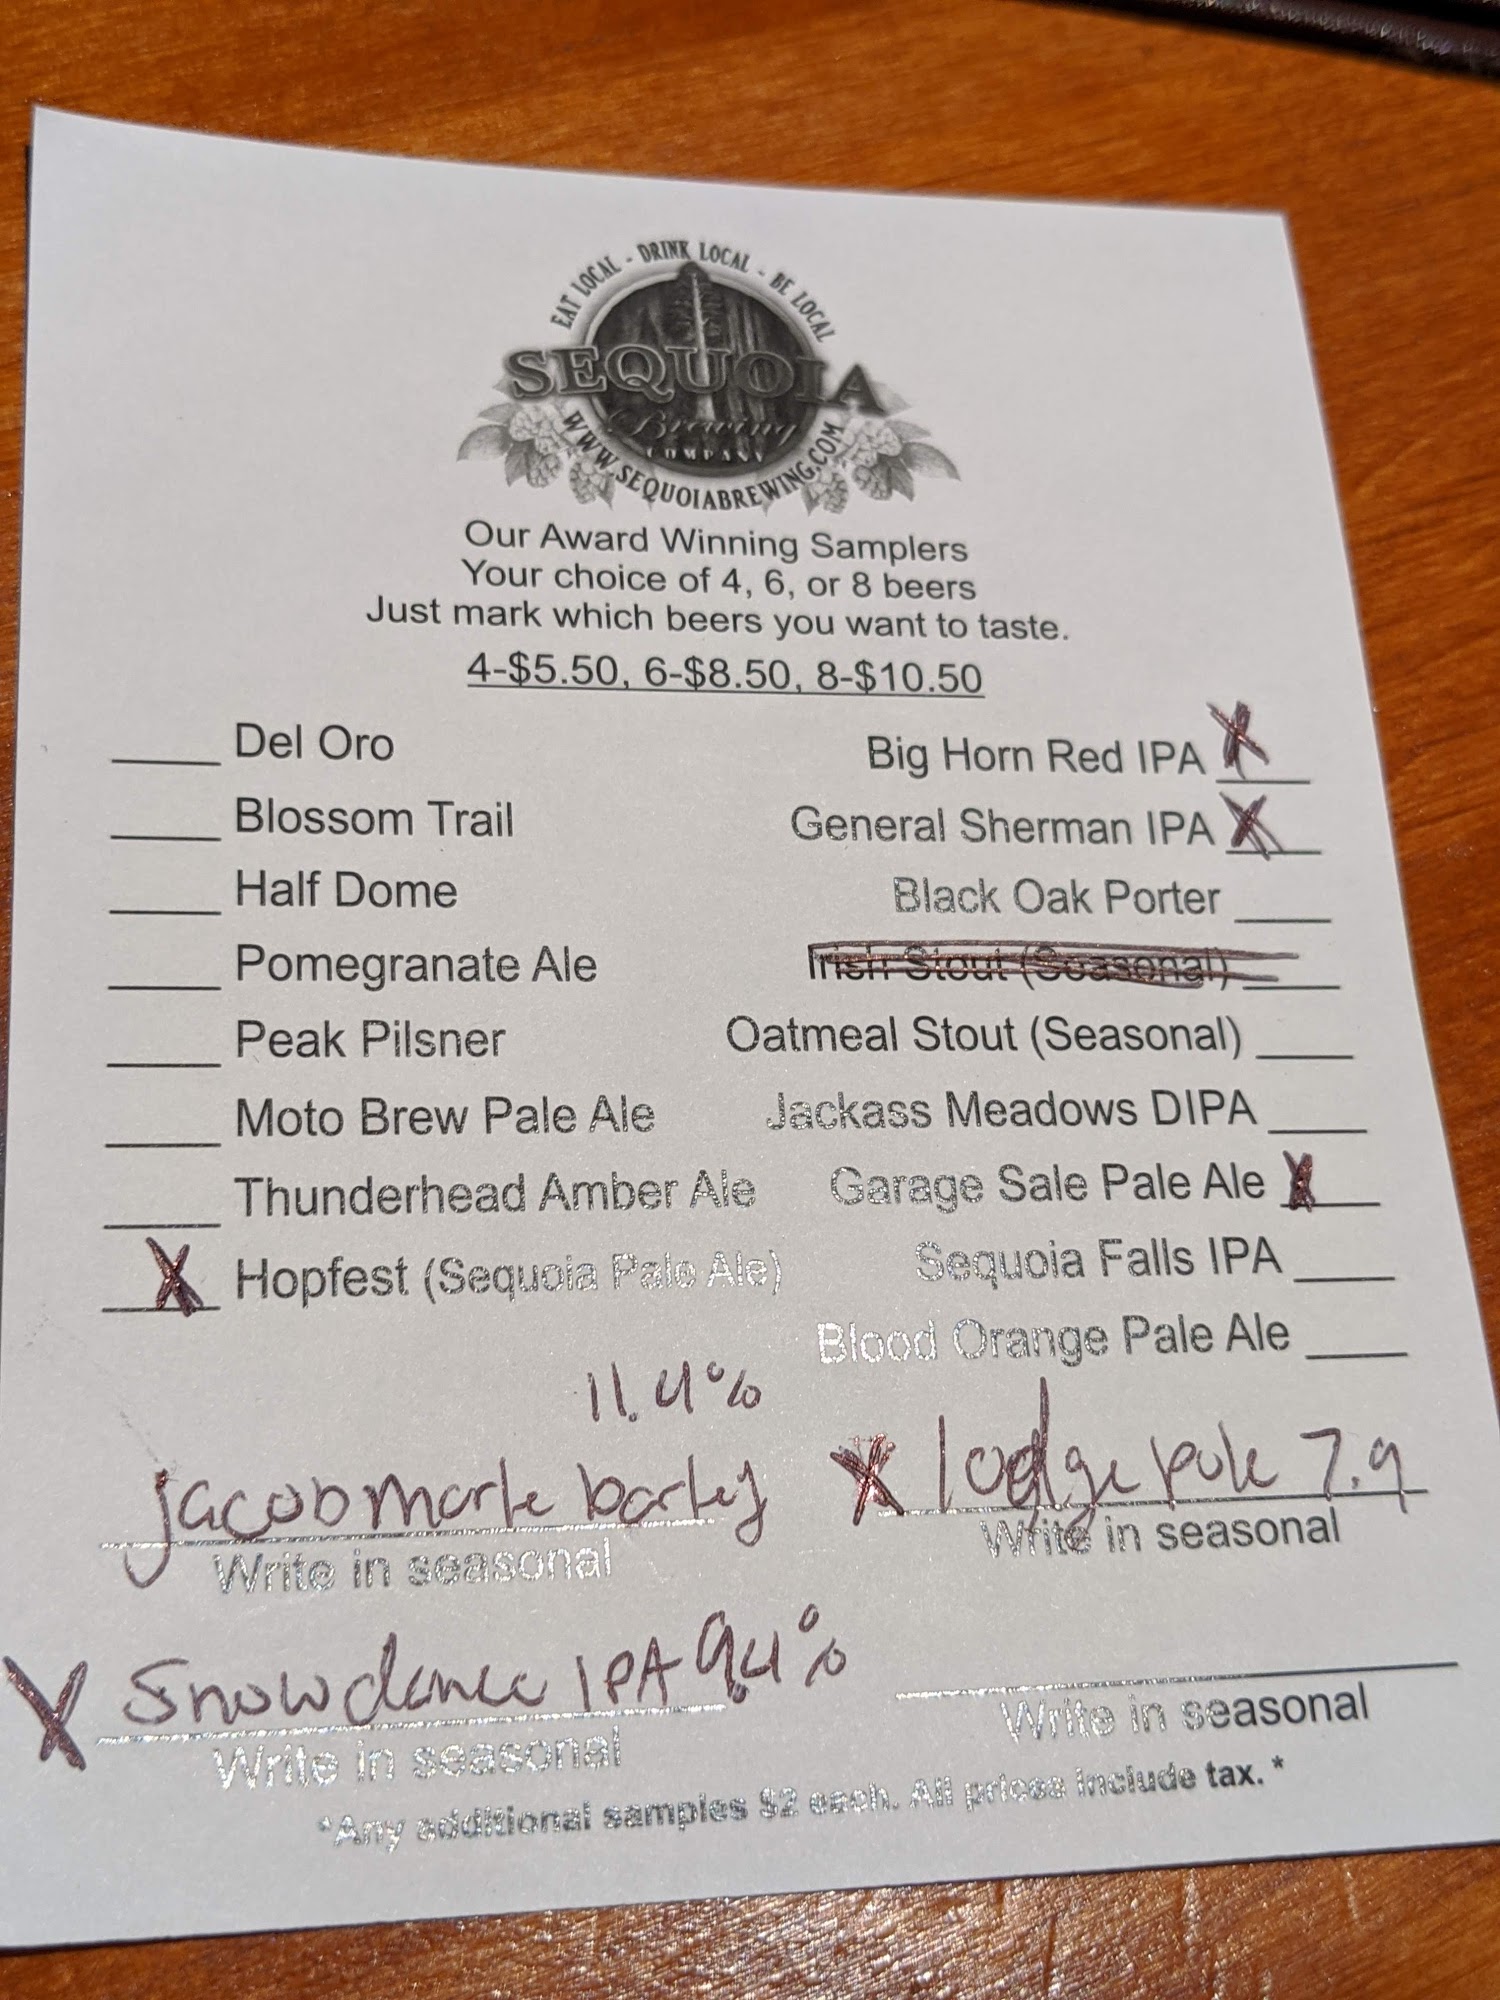 EAT LOCAL - DRINK LOCAL - BE LOCAL
SEQUOIA
Brewing
COMPANY
WWW.SEQUOIABREWING.COM
Our Award Winning Samplers
Your choice of 4, 6, or 8 beers
Just mark which beers you want to taste.
4-$5.50, 6-$8.50, 8-$10.50
Del Oro
Blossom Trail
Half Dome
Pomegranate Ale
Peak Pilsner
Moto Brew Pale Ale
Thunderhead Amber Ale
X Hopfest (Sequoia Pale Ale)
Big Horn Red IPA X
General Sherman IPA X
Black Oak Porter
Irish Stout (Seasonal)
Oatmeal Stout (Seasonal)
Jackass Meadows DIPA
Garage Sale Pale Ale X
Sequoia Falls IPA
Blood Orange Pale Ale
11.4%
jacob marle barley
Write in seasonal
X lodge pole 7.9
Write in seasonal
X Snow dance IPA 9.4%
Write in seasonal
Write in seasonal
*Any additional samples $2 each. All prices include tax. *